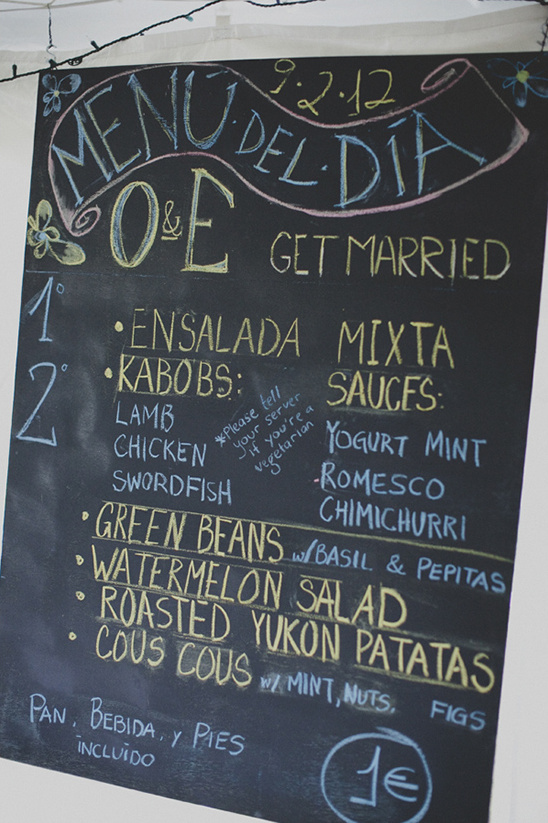 9.2.12
MENÚ · DEL · DÍA
O & E GET MARRIED
1°
• ENSALADA MIXTA
2°
• KABOBS:
LAMB
CHICKEN
SWORDFISH
*Please tell
your server
if you're a
vegetarian
SAUCES:
YOGURT MINT
ROMESCO
CHIMICHURRI
• GREEN BEANS w/BASIL & PEPITAS
• WATERMELON SALAD
• ROASTED YUKON PATATAS
• COUS COUS w/ MINT, NUTS, FIGS
PAN, BEBIDA, y PIES
INCLUÍDO
1€